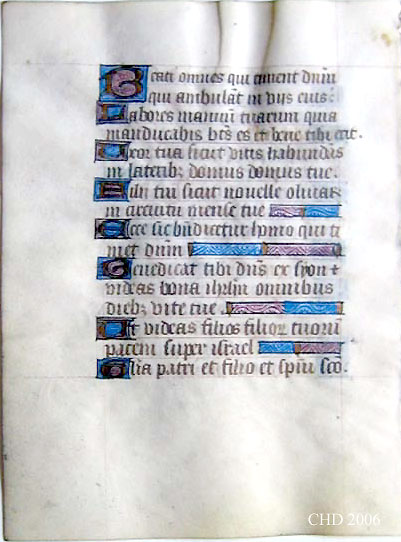 Beati omnes qui timent dnm
qui ambulāt in vijs eius:
Labores manuū tuarum quia
manducabis bt̄s es et bene tibi erit.
Uxor tua sicut vitis habundās
in lateribꝫ domus domus tue.
Filij tui sicut nouelle oliuaꝝ
in circuitu mense tue
Ecce sic bn̄dicetur homo qui ti
met dnm
Benedicat tibi dn̄s ex syon ⁊
videas bona ihrlm omnibus
diebꝫ vite tue
Et videas filios filioꝝ tuoꝝ
pacem super israel
Glīa patri et filio et spiūi sc̄o.
CHD 2006